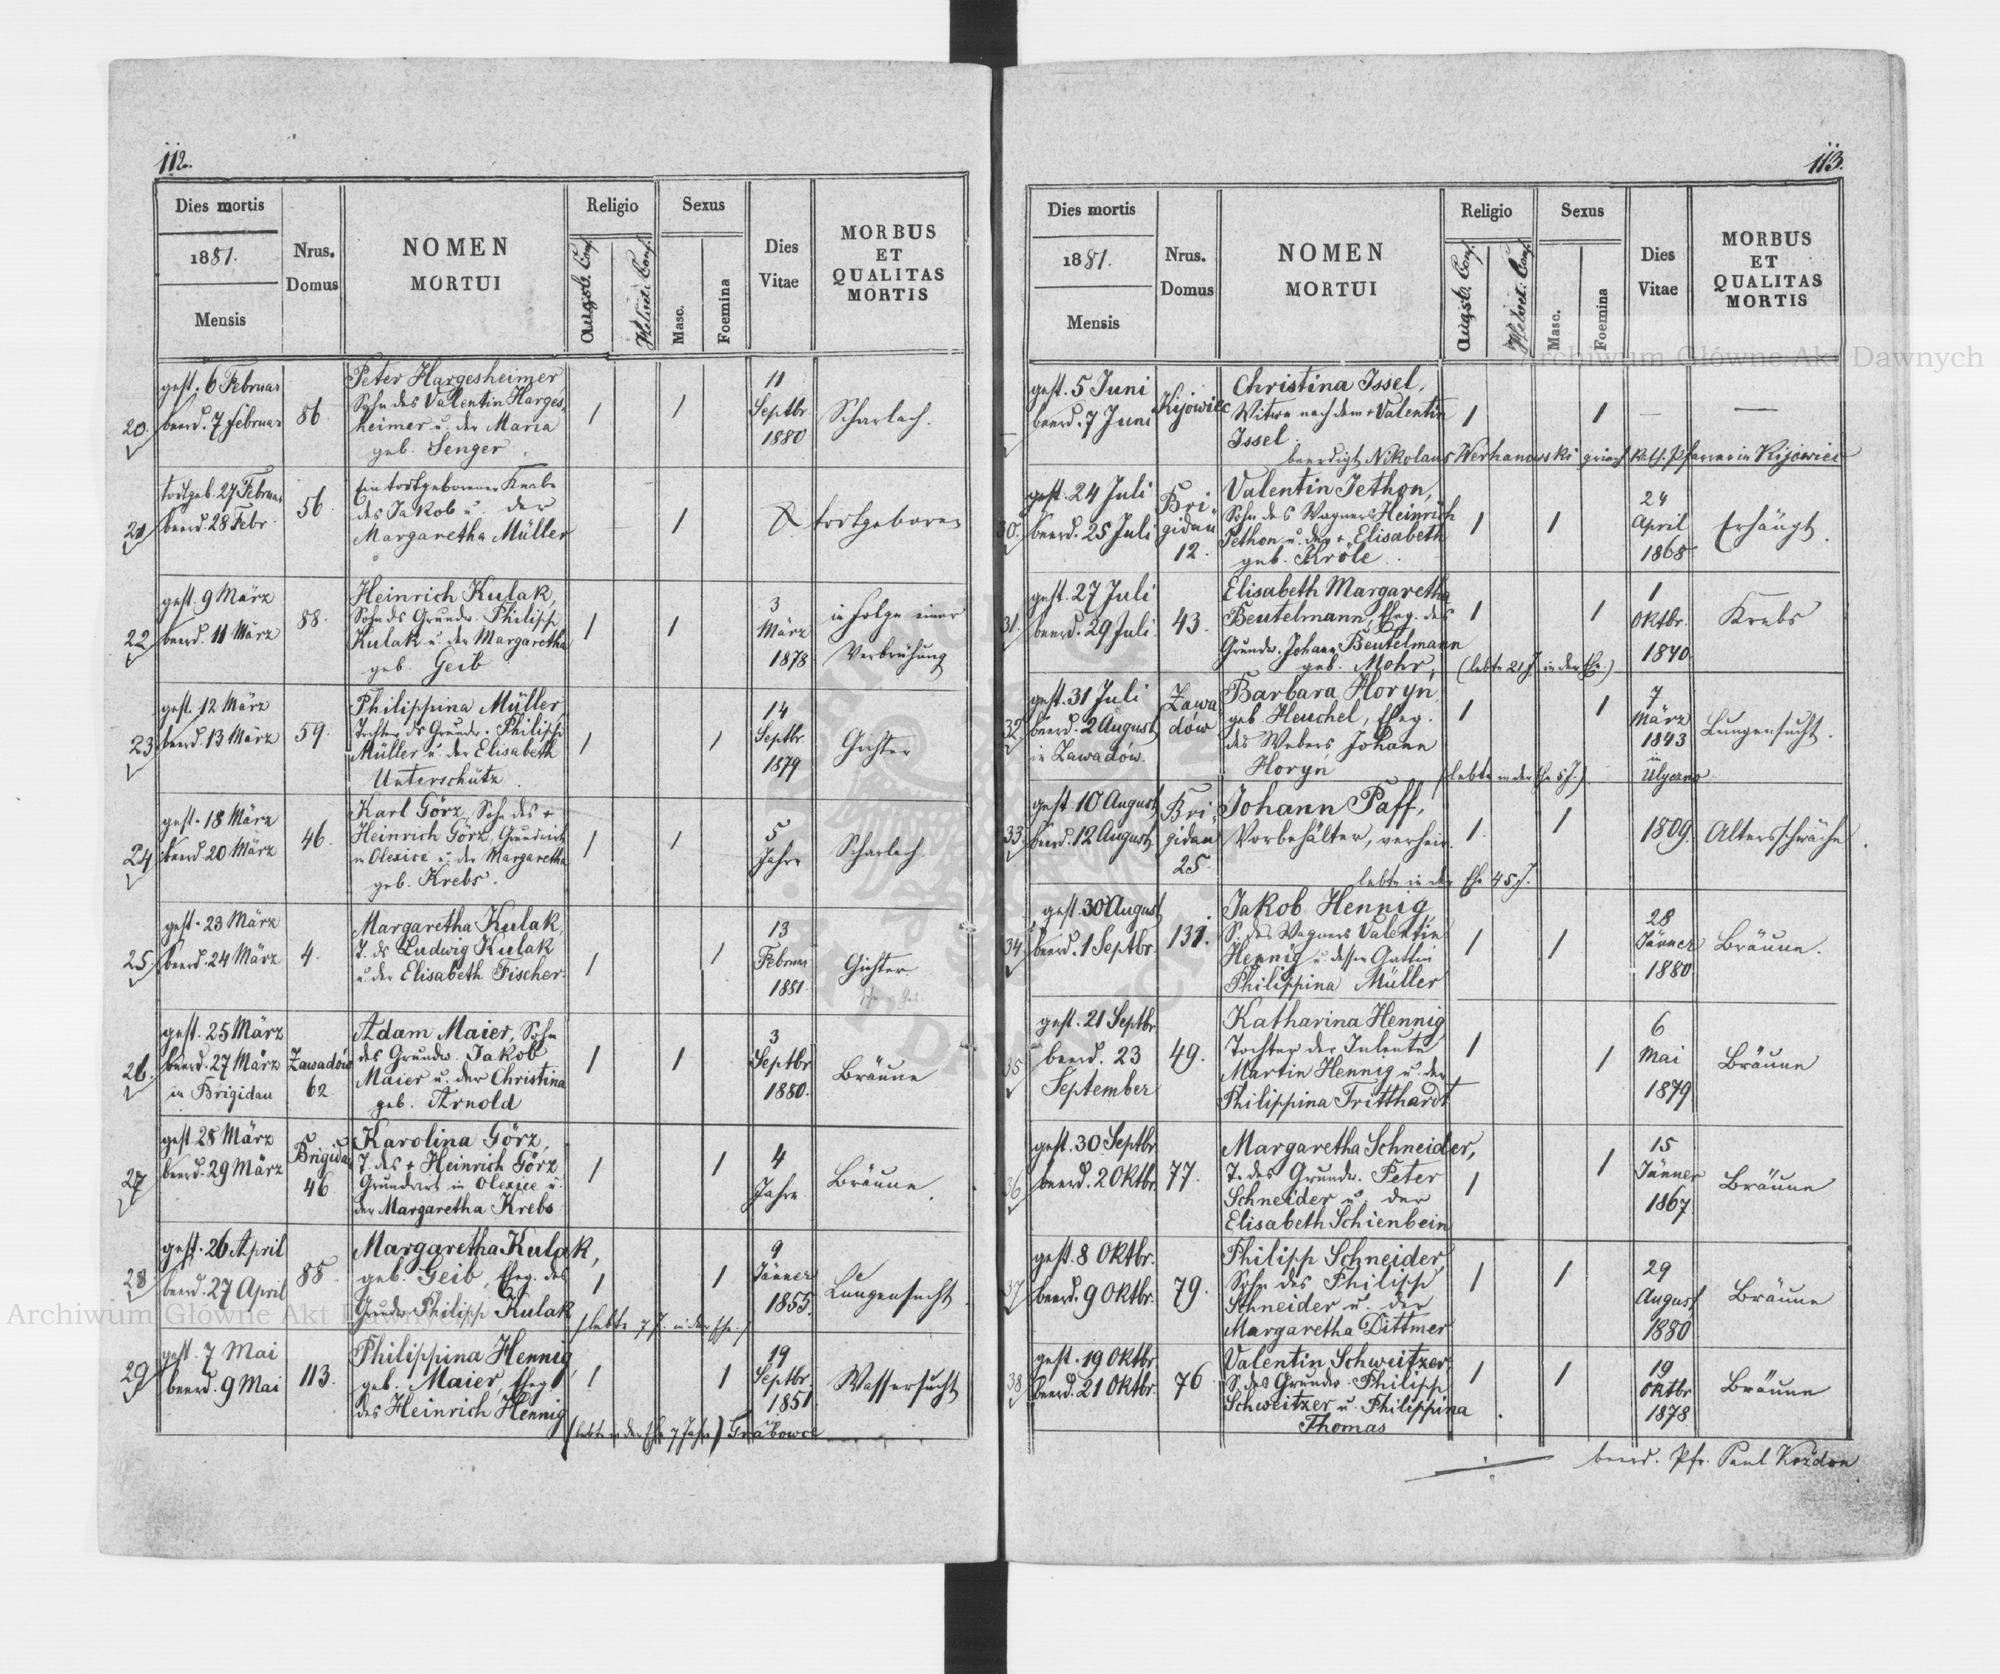 112.
Dies mortis
1881.
Mensis
Nrus.
Domus
NOMEN
MORTUI
Religio
Augsb. Conf.
Helvet. Conf.
Sexus
Masc.
Foemina
Dies
Vitae
MORBUS
ET
QUALITAS
MORTIS
20.
gest. 6 Februar
beerd. 7 Februar
86.
Peter Hargesheimer,
Sohn des Valentin Harges-
heimer u. der Maria
geb. Senger.
1
1
11
Septbr
1880
Scharlach.
21
todtgeb. 27 Februar
beerd. 28 Febr.
56.
Ein todtgeborener Knabe
des Jakob u. der
Margaretha Müller
1
todtgeboren
22
gest. 9 März
beerd. 11 März
88.
Heinrich Kulak,
Sohn ds Grundw. Philipp
Kulak u. der Margaretha
geb. Geib
1
1
3
März
1878
in Folge einer
Verbrühung
23
gest. 12 März
beerd. 13 März
59.
Philippina Müller
Tochter ds Grundw. Philipp
Müller u. der Elisabeth
Unterschütz
1
1
14
Septbr.
1879
Gichter
24
gest. 18 März
beerd. 20 März
46.
Karl Görz, Sohn des +
Heinrich Görz, Grundwirth
in Olexice u. der Margaretha
geb. Krebs.
1
1
5
Jahre
Scharlach.
25
gest. 23 März
beerd. 24 März
4.
Margaretha Kulak,
T. ds Ludwig Kulak
u. der Elisabeth Fischer.
1
1
13
Februar
1881.
Gichter
26.
gest. 25 März
beerd. 27 März
in Brigidau
Zawadów
62
Adam Maier, Sohn
des Grundw. Jakob
Maier u. der Christina
geb. Arnold
1
1
3
Septbr
1880.
Bräune
27
gest. 28 März
beerd. 29 März
Brigidau
46
Karolina Görz,
T. des + Heinrich Görz
Grundwirt in Olexice u.
der Margaretha Krebs
1
1
4
Jahre
Bräune.
28
gest. 26 April
beerd. 27 April
88.
Margaretha Kulak,
geb. Geib, Eheg. des
Grundw. Philipp Kulak
(lebte 7 J. in der Ehe.)
1
1
9
Jänner
1855.
Lungensucht.
29
gest. 7 Mai
beerd. 9 Mai
113.
Philippina Hennig
geb. Maier, Eheg.
des Heinrich Hennig
(lebte in der Ehe 7 Jahr)
1
1
19
Septbr.
1851.
in
Grabowce
Wassersucht
113.
Dies mortis
1881.
Mensis
Nrus.
Domus
NOMEN
MORTUI
Religio
Augsb. Conf.
Helvet. Conf.
Sexus
Masc.
Foemina
Dies
Vitae
MORBUS
ET
QUALITAS
MORTIS
gest. 5 Juni
beerd. 7 Juni
Kijowiec
Christina Issel,
Witwe nach dem + Valentin
Issel.
1
1
—
—
beerdigt Nikolaus Werhanowski griech. kath. Pfarrer in Kijowiec
30.
gest. 24 Juli
beerd. 25 Juli
Bri-
gidau
12.
Valentin Jethon,
Sohn des Wagners Heinrich
Jethon u. der + Elisabeth
geb. Kröle
1
1
24
April
1868
Erhängt.
31.
gest. 27 Juli
beerd. 29 Juli.
43.
Elisabeth Margaretha
Beutelmann, Eheg. des
Grundw. Johann Beutelmann
geb. Mohr,
(lebte 21 J. in der Ehe.)
1
1
1
Oktbr.
1840
Krebs
32
gest. 31 Juli
beerd. 2 August
in Zawadów.
Zawa-
dów
Barbara Horyń
geb. Heuchel, Eheg.
des Webers Johann
Horyń
(lebte in der Ehe 5 J.)
1
1
7
März
1843
in
Ulyczno
Lungensucht.
33.
gest. 10 August
beerd. 12 August
Bri-
gidau
25.
Johann Paff,
Vorbehälter, verheir.
lebte in der Ehe 45 J.
1.
1
1809.
Altersschwäche.
34.
gest. 30 August
beerd. 1 Septbr.
131.
Jakob Hennig,
S. des Wagners Valentin
Hennig u. dessen Gattin
Philippina Müller
1
1
28
Jänner
1880
Bräune.
35
gest. 21 Septbr
beerd. 23
September
49.
Katharina Hennig
Tochter der Inleute
Martin Hennig u. der
Philippina Tritthardt
1
1
6
Mai
1879
Bräune
36
gest. 30 Septbr
beerd. 2 Oktbr.
77.
Margaretha Schneider,
T. des Grundw. Peter
Schneider u. der
Elisabeth Schienbein
1
1
15
Jänner
1867
Bräune
37
gest. 8 Oktbr.
beerd. 9 Oktbr.
79.
Philipp Schneider,
Sohn des Philipp
Schneider u. der
Margaretha Dittmer
1
1
29
August
1880
Bräune
38
gest. 19 Oktbr.
beerd. 21 Oktbr.
76
Valentin Schweitzer,
S. des Grundw. Philipp
Schweitzer u. Philippina
Thomas
1
1
19
Oktbr
1878
Bräune
beerd. Pfr. Paul Kozdon
Archiwum Główne Akt Dawnych
Archiwum Główne Akt Dawnych